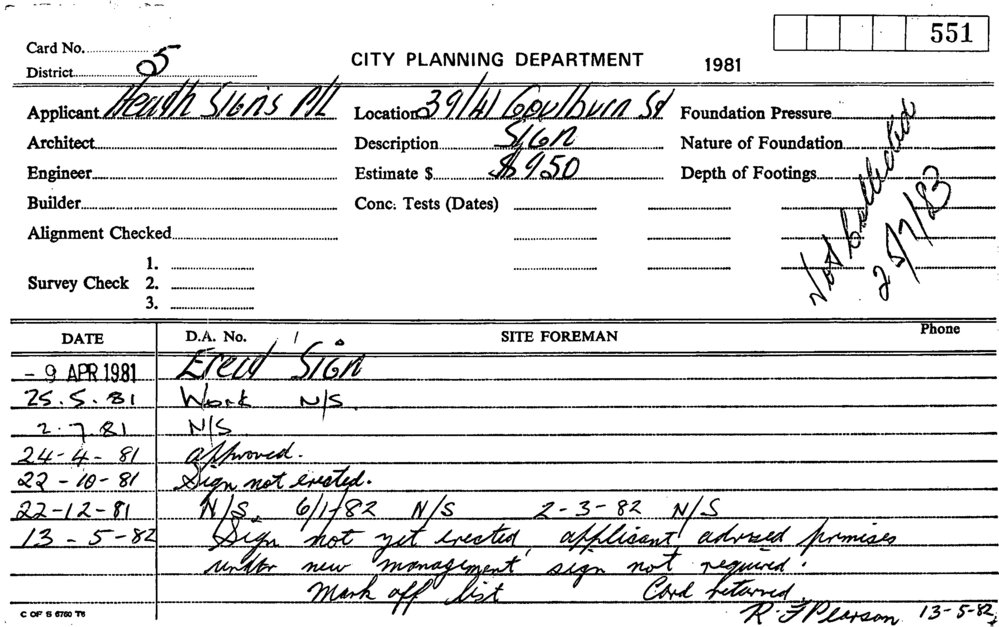 551
Card No.
District 05
CITY PLANNING DEPARTMENT 1981
Applicant Heath Signs P/L Location 39/41 Goulburn St Foundation Pressure
Architect Description SIGN Nature of Foundation
Engineer Estimate $ $950 Depth of Footings
Builder Conc. Tests (Dates)
Not Collected
25/7/83
Alignment Checked
Survey Check 1.
2.
3.
DATE D.A. No. SITE FOREMAN Phone
- 9 APR 1981 Erect SIGN
25.5.81 Work N/S
2.7.81 N/S
24-4-81 approved.
22-10-81 Sign not erected.
22-12-81 N/S 6/1/82 N/S 2-3-82 N/S
13-5-82 Sign not yet erected, applicant advised premises
under new management sign not required.
Mark off list Card returned.
R. F Pearson 13-5-82
C OF S 6760 T6